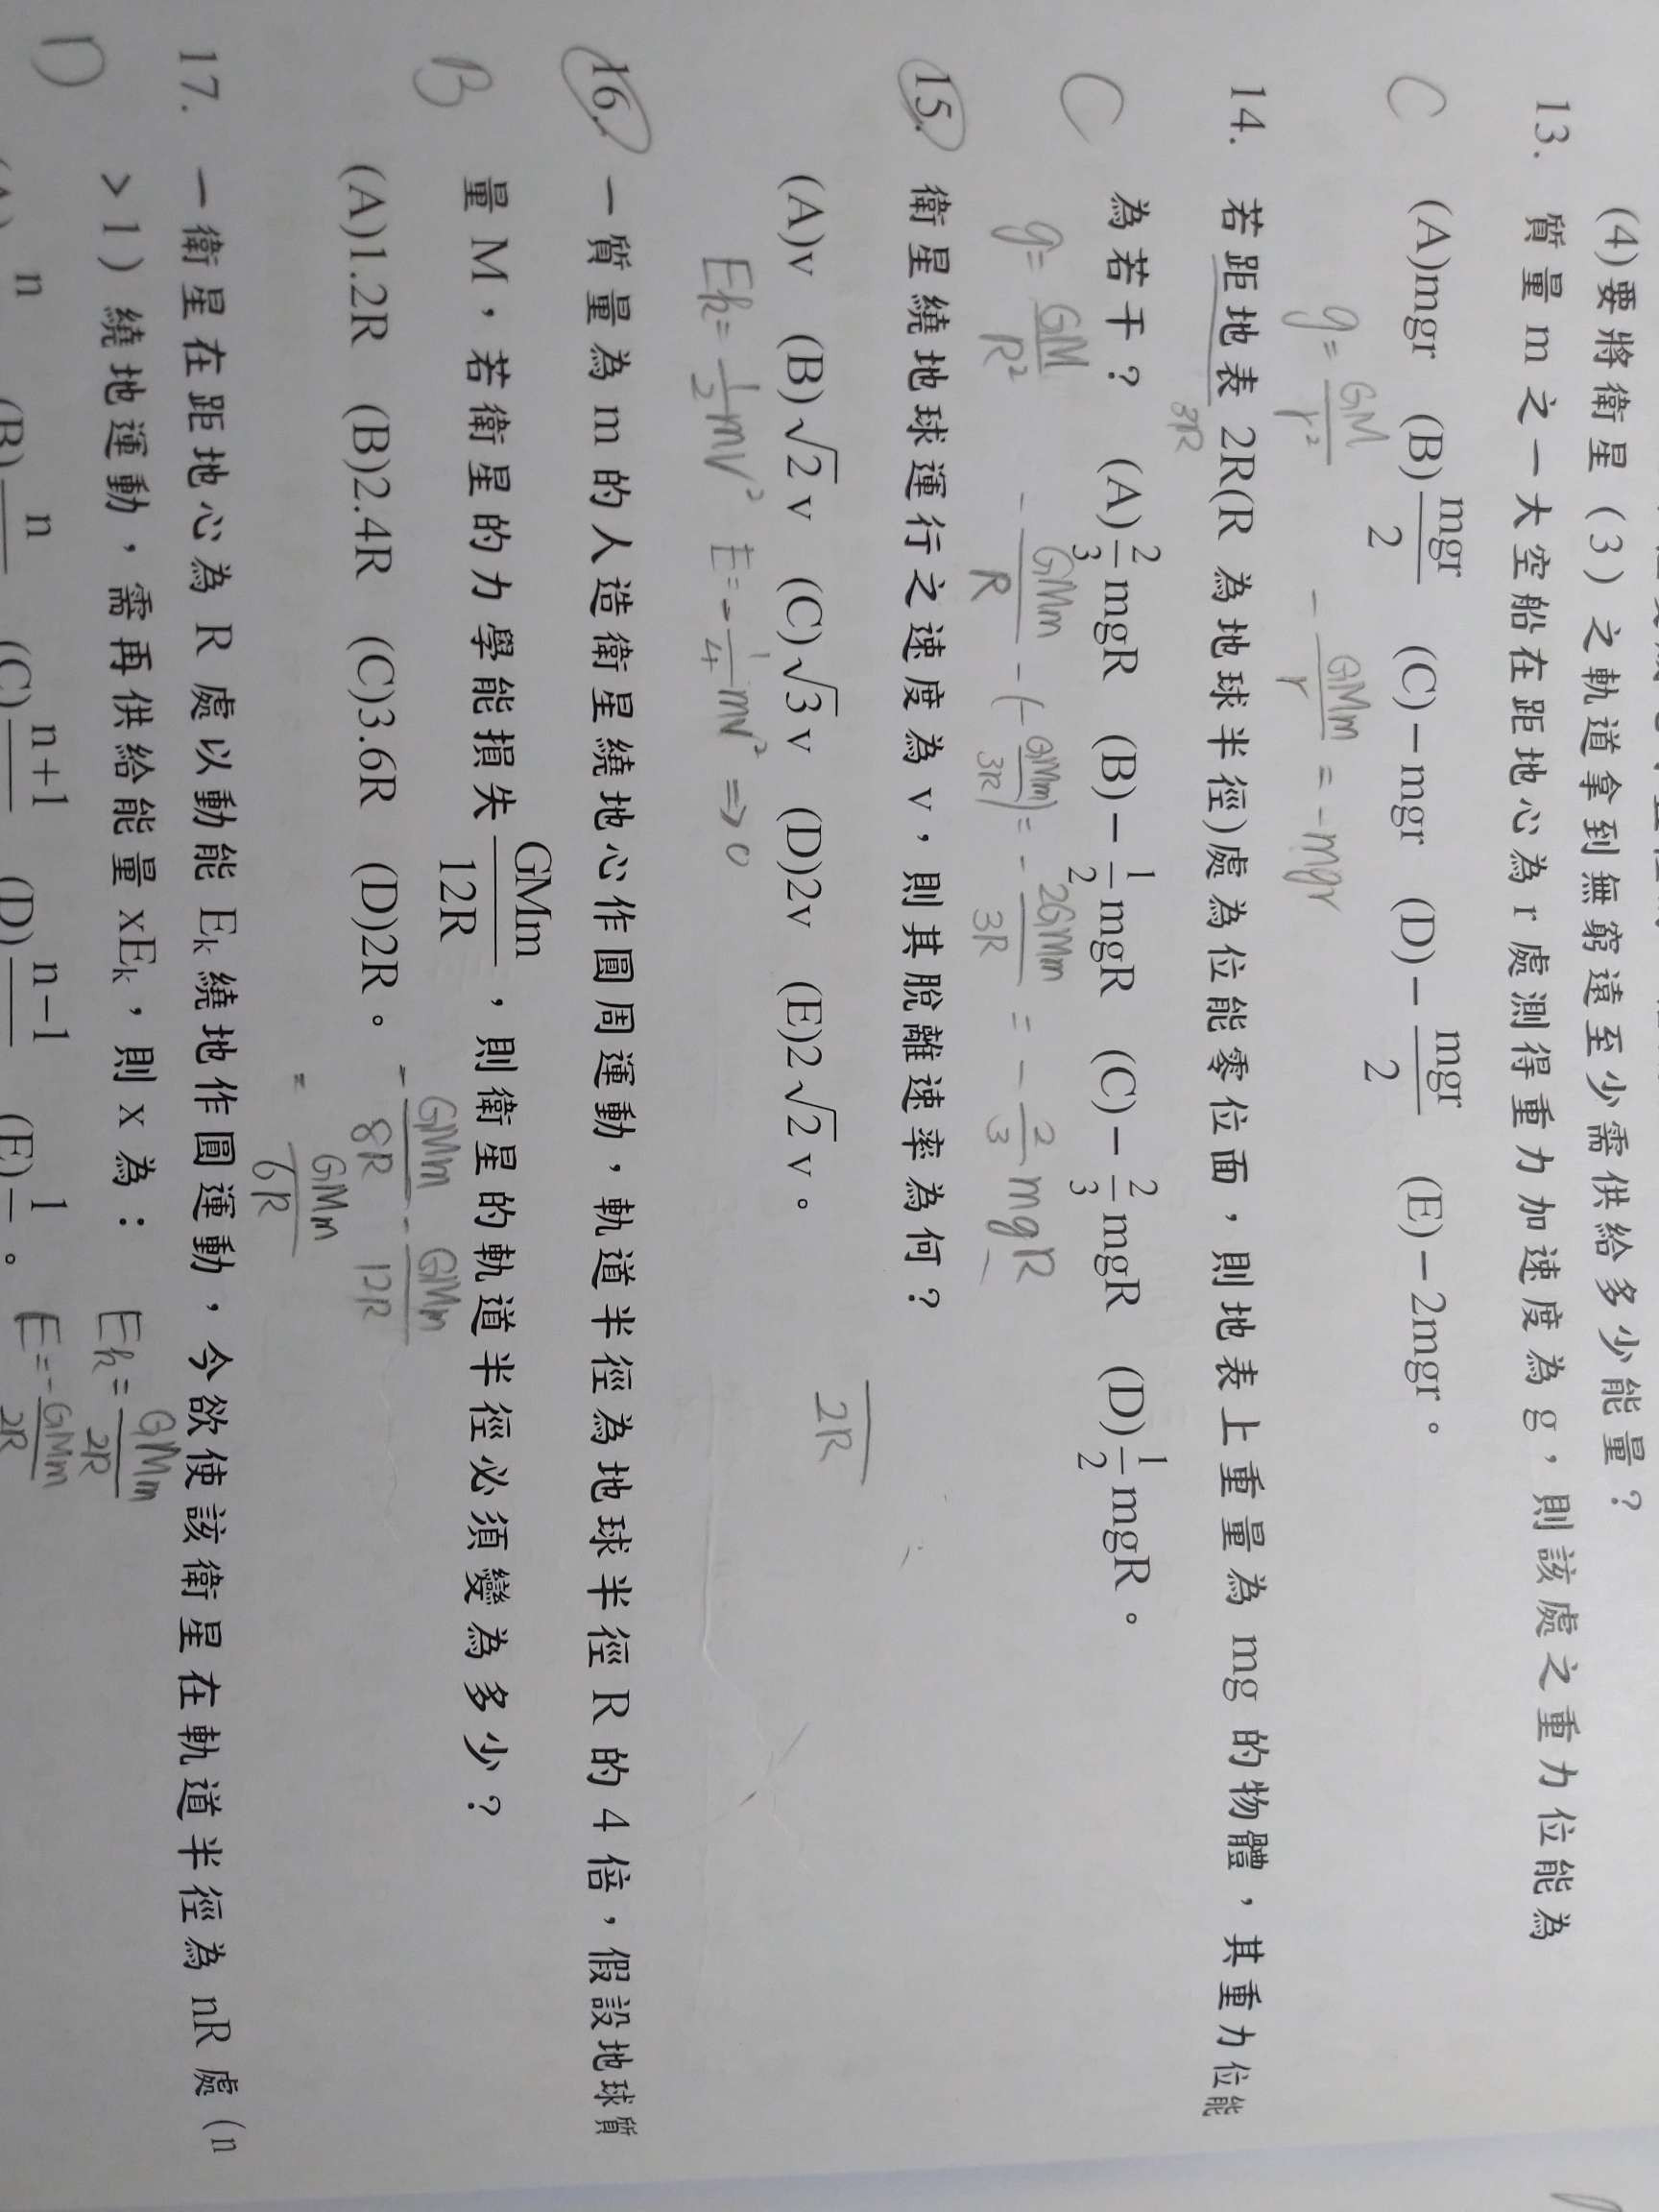 (4)要將衛星(3)之軌道拿到無窮遠至少需供給多少能量?
13. 質量 m 之一大空船在距地心為 r 處測得重力加速度為 g,則該處之重力位能為
C (A)mgr (B)mgr/2 (C)−mgr (D)−mgr/2 (E)−2mgr。
g= GM/r² −GMm/r = -mgr
14. 若距地表 2R(R 為地球半徑)處為位能零位面,則地表上重量為 mg 的物體,其重力位能
3R
C 為若干? (A)2/3 mgR (B)−1/2 mgR (C)−2/3 mgR (D)1/2 mgR。
g= GM/R² -GMm/R -(-GMm/3R)= -2GMm/3R = -2/3 mgR
15. 衛星繞地球運行之速度為 v,則其脫離速率為何?
(A)v (B)√2 v (C)√3 v (D)2v (E)2√2 v。
2R
Ek= 1/2 mv² E=-1/4 mv² ⇒0
16. 一質量為 m 的人造衛星繞地心作圓周運動,軌道半徑為地球半徑 R 的 4 倍,假設地球質
B 量 M,若衛星的力學能損失 GMm/12R,則衛星的軌道半徑必須變為多少?
(A)1.2R (B)2.4R (C)3.6R (D)2R。
-GMm/8R - GMm/12R
= GMm/6R
17. 一衛星在距地心為 R 處以動能 Ek 繞地作圓運動,今欲使該衛星在軌道半徑為 nR 處(n
D >1)繞地運動,需再供給能量 xEk,則 x 為:
Ek= GMm/2R
E=-GMm/2R
n (B) n (C) n+1 (D) n−1 (E) 1 。